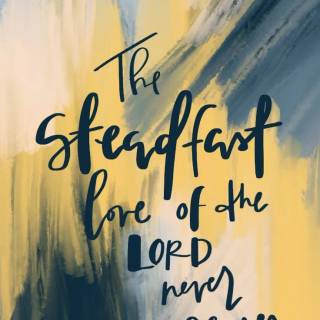 The
Steadfast
love of the
LORD
never